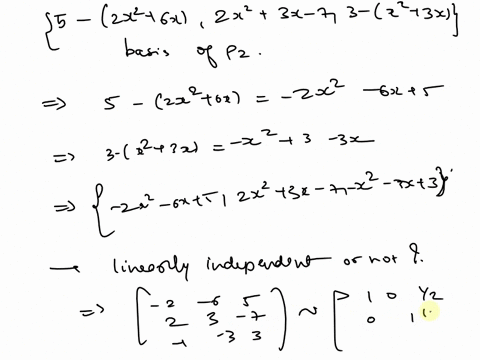 {5 - (2x²+6x) , 2x² + 3x - 7, 3 - (x²+3x)}
basis of P2.
⇒ 5 - (2x²+6x) = -2x² -6x+5
⇒ 3-(x²+3x) = -x²+3 -3x
⇒ {-2x²-6x+5, 2x²+3x-7, -x²-3x+3}
→ linearly independent or not ?
⇒ [-2 -6 5 ~ [ 1 0 1/2
2 3 -7 0 1
-1 -3 3]